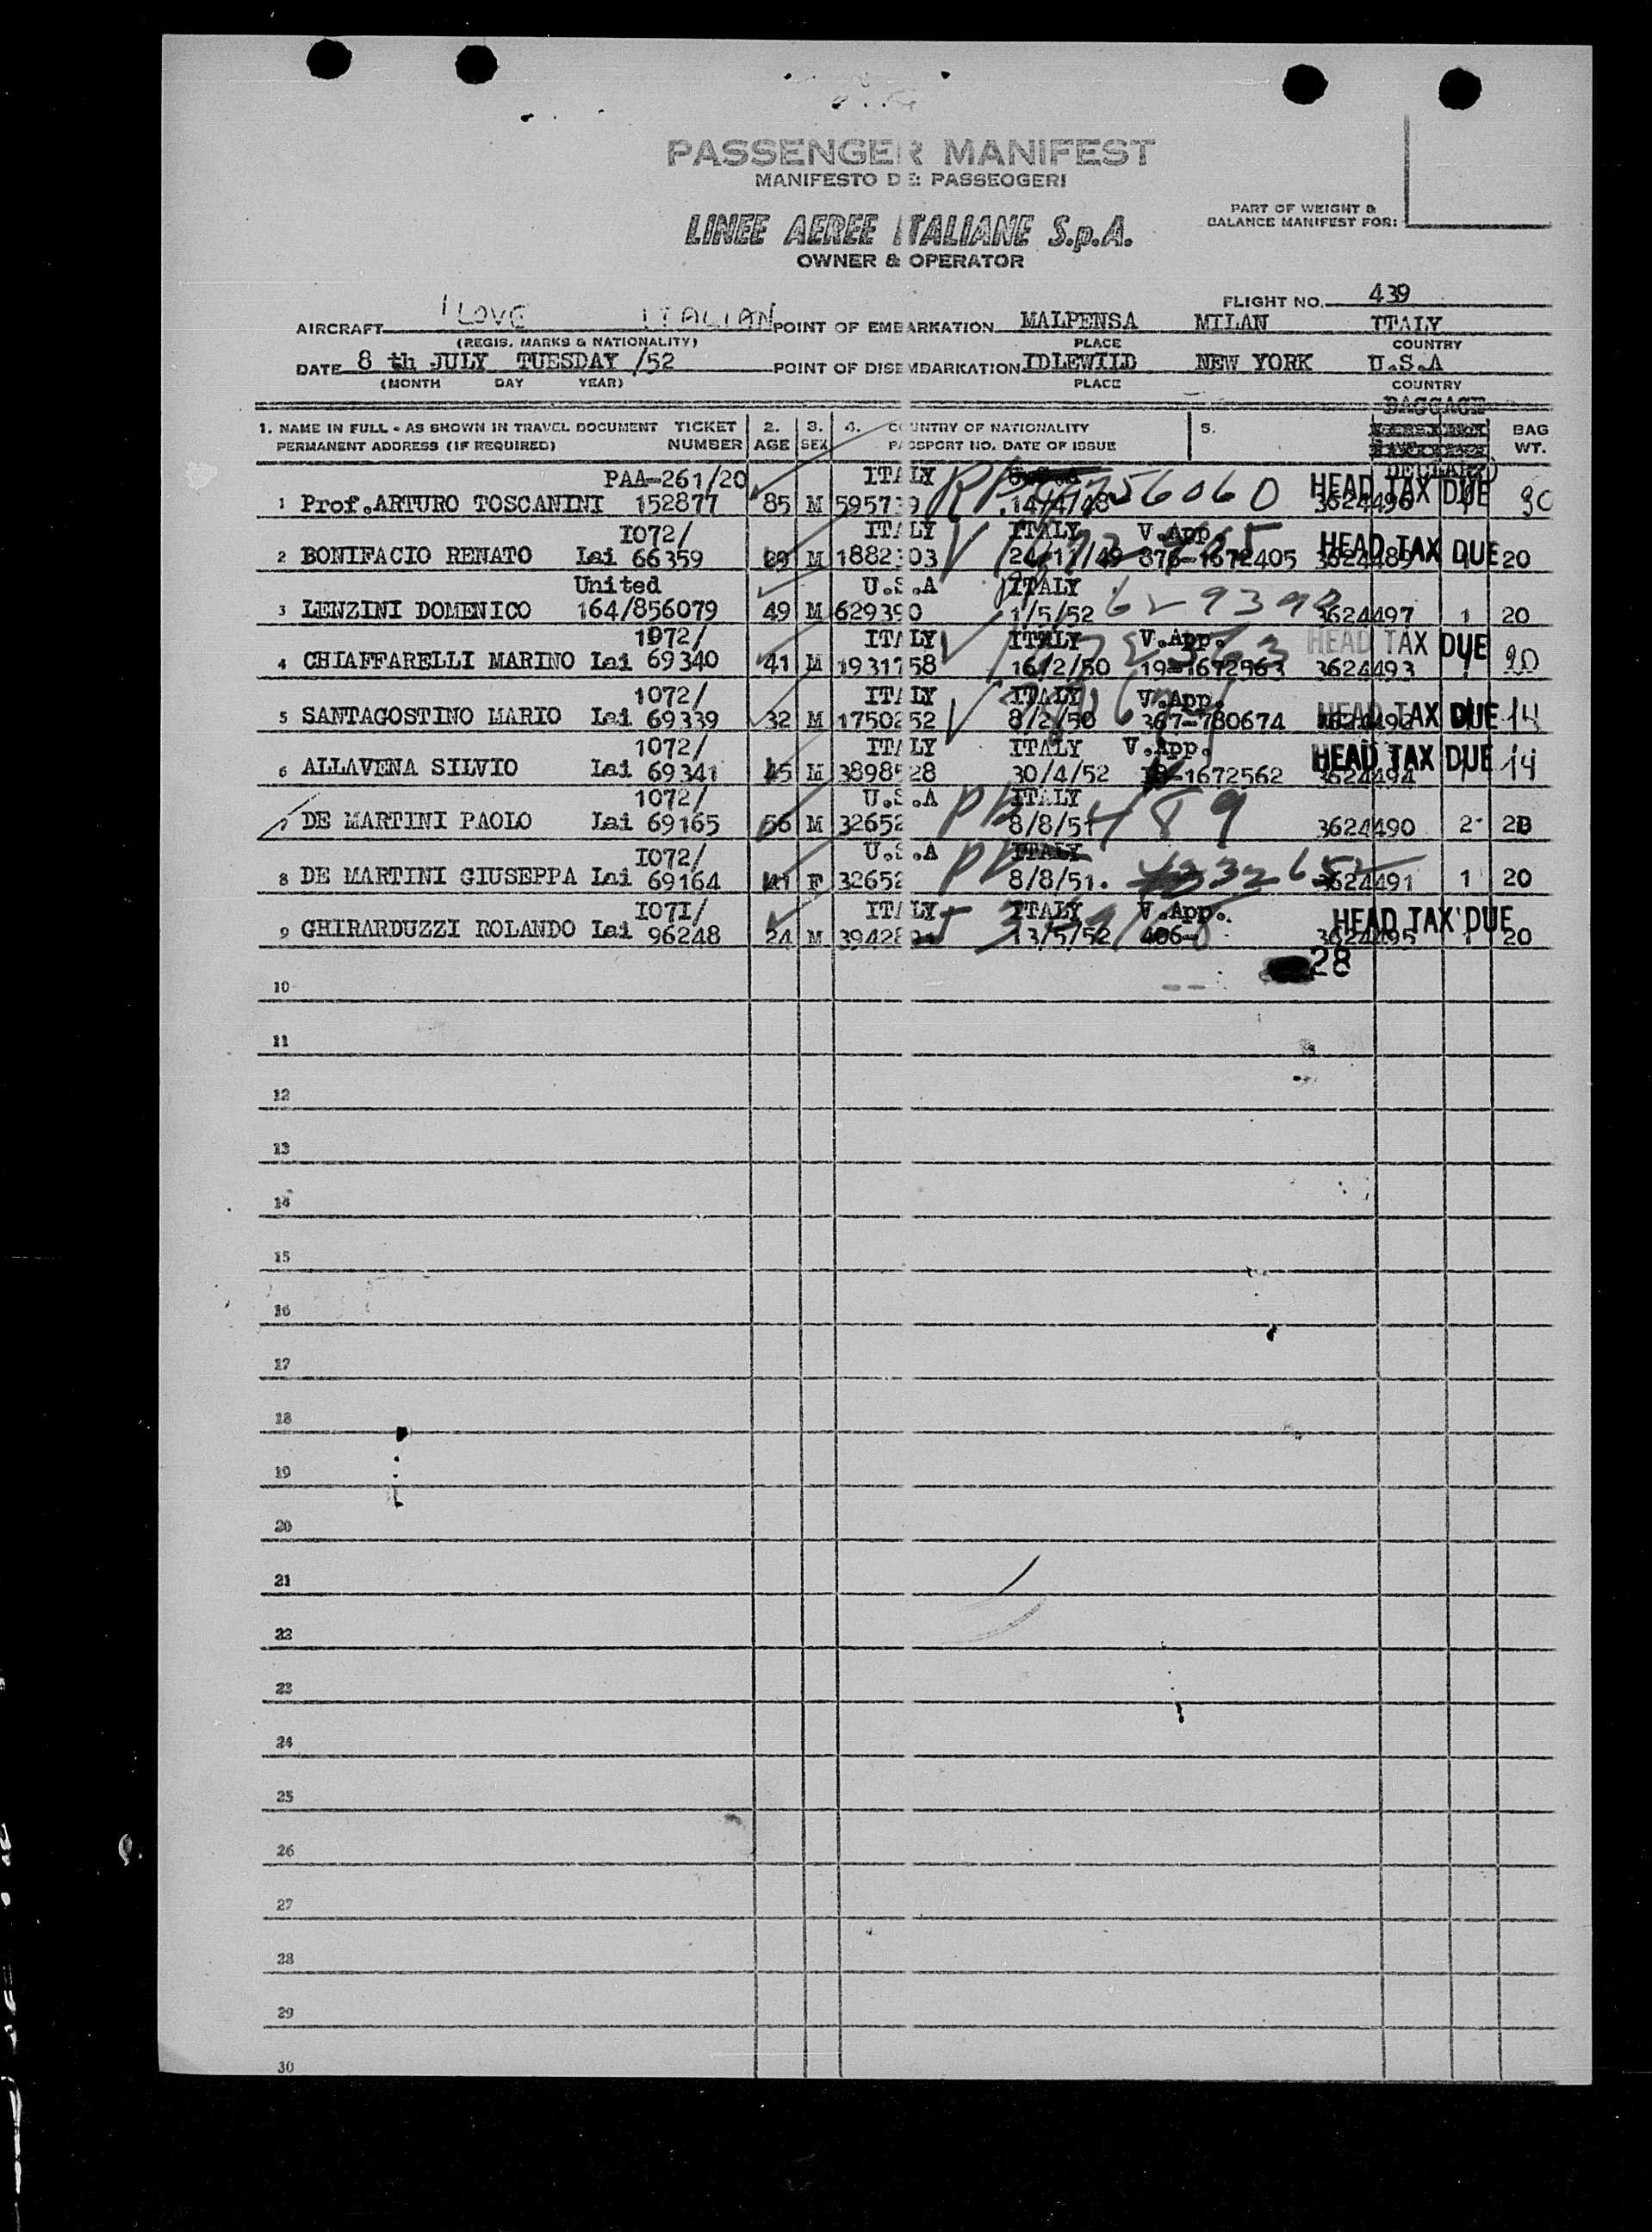 PASSENGER MANIFEST
MANIFESTO DEI PASSEOGERI
LINEE AEREE ITALIANE S.p.A.
OWNER & OPERATOR
PART OF WEIGHT &
BALANCE MANIFEST FOR:
FLIGHT NO. 439
AIRCRAFT I LOVE ITALIAN POINT OF EMBARKATION MALPENSA MILAN ITALY
(REGIS. MARKS & NATIONALITY) PLACE COUNTRY
DATE 8 th JULY TUESDAY /52 POINT OF DISEMBARKATION IDLEWILD NEW YORK U.S.A
(MONTH DAY YEAR) PLACE COUNTRY
BAGGAGE
1. NAME IN FULL - AS SHOWN IN TRAVEL DOCUMENT TICKET 2. 3. 4. COUNTRY OF NATIONALITY 5. BAG
PERMANENT ADDRESS (IF REQUIRED) NUMBER AGE SEX PASSPORT NO. DATE OF ISSUE WT.
PAA-261/20 ITALY
1 Prof.ARTURO TOSCANINI 152877 85 M 14/4/48 3624496 HEAD TAX DUE 30
I072/ ITALY ITALY V.App.
2 BONIFACIO RENATO Lai 66359 M 1882 03 376-1672405 3624489 HEAD TAX DUE 20
United U.S.A ITALY
3 LENZINI DOMENICO 164/856079 49 M 629390 1/5/52 629390 3624497 1 20
1072/ ITALY ITALY V.App. HEAD TAX DUE
4 CHIAFFARELLI MARINO Lai 69340 41 M 1931758 16/2/50 19-1672563 3624493 20
1072/ ITALY ITALY V.App.
5 SANTAGOSTINO MARIO Lai 69339 32 M 1750252 8/2/50 367-780674 HEAD TAX DUE 14
1072/ ITALY ITALY V.App.
6 ALLAVENA SILVIO Lai 69341 45 M 3898528 30/4/52 1672562 3624494 HEAD TAX DUE 14
1072/ U.S.A ITALY
7 DE MARTINI PAOLO Lai 69165 56 M 32652 8/8/51 489 3624490 2 20
I072/ U.S.A ITALY
8 DE MARTINI GIUSEPPA Lai 69164 41 F 32652 8/8/51. 3624491 1 20
I071/ ITALY ITALY V.App.
9 GHIRARDUZZI ROLANDO Lai 96248 24 M 13/5/52 406- 3624495 HEAD TAX DUE 20
28
10
11
12
13
14
15
16
17
18
19
20
21
22
23
24
25
26
27
28
29
30